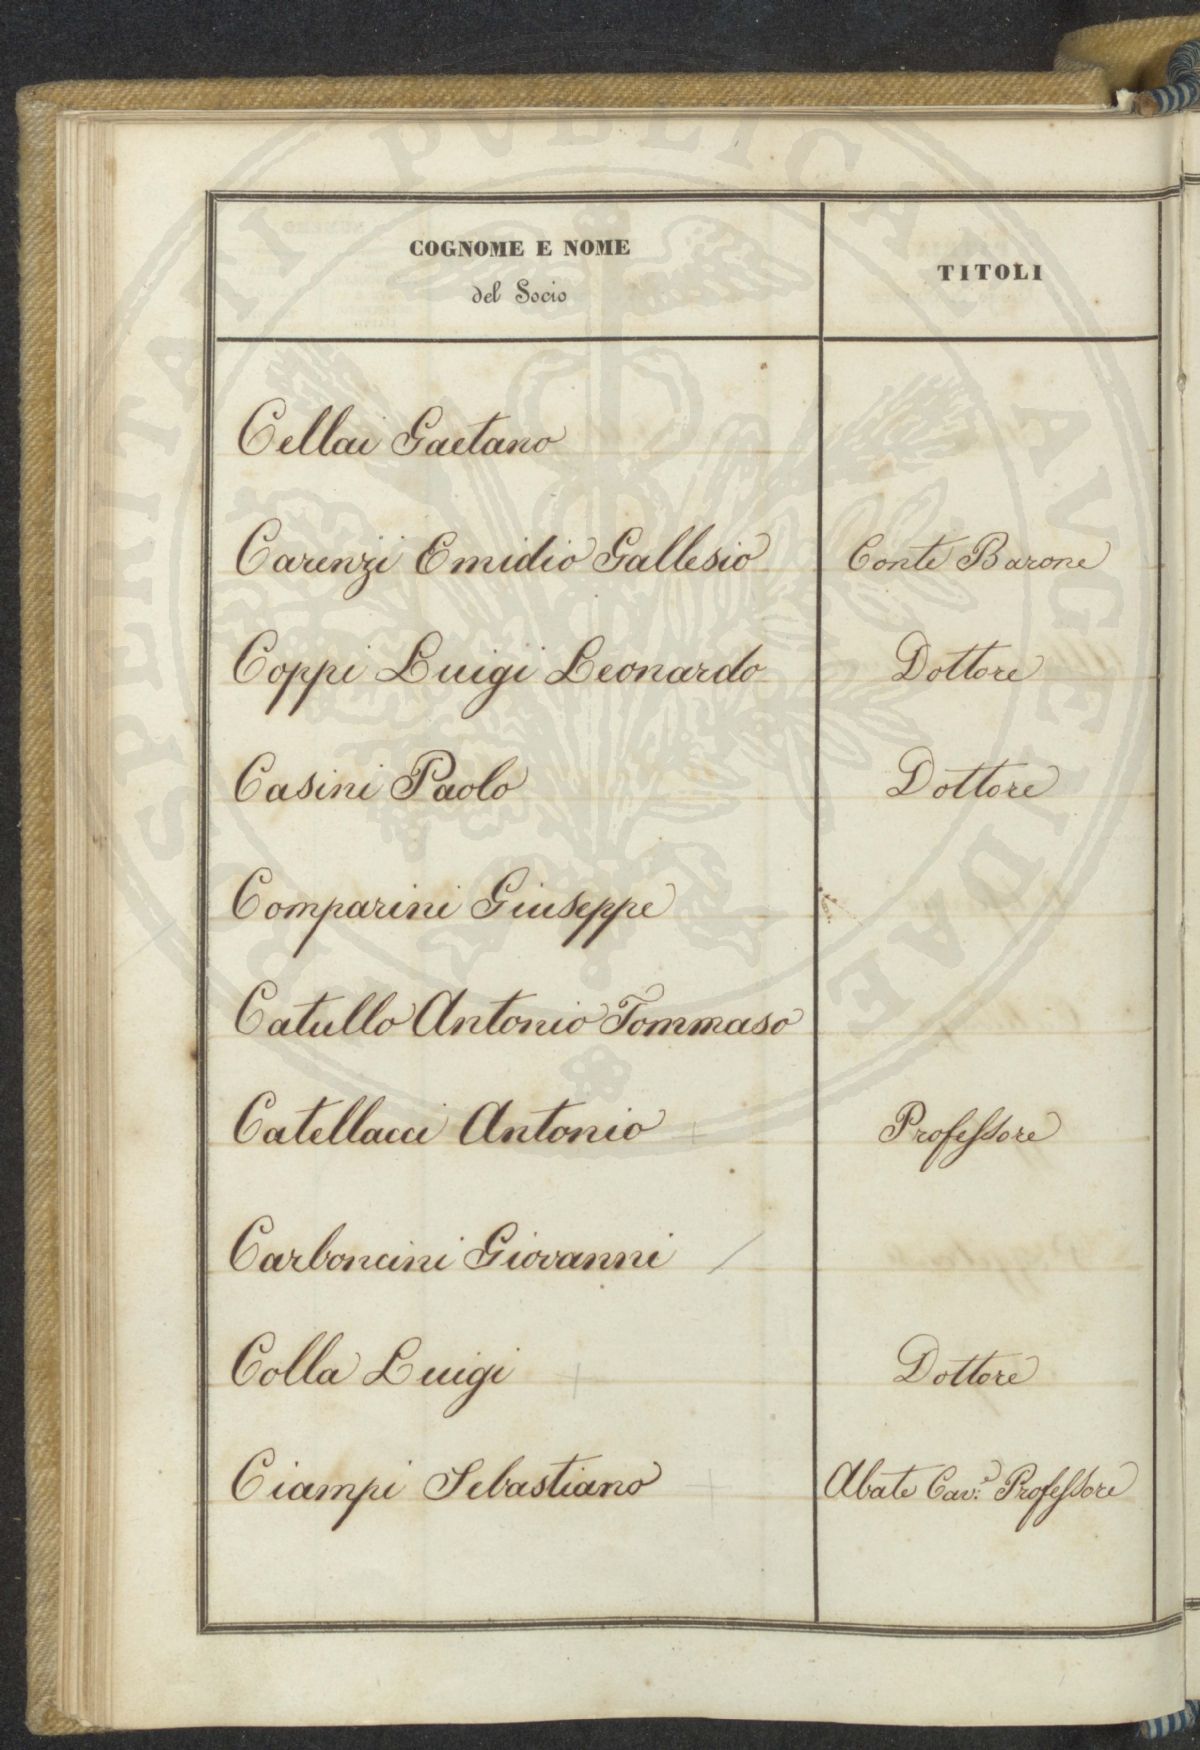 COGNOME E NOME
del Socio
TITOLI
Cellai Gaetano
Carenzi Emidio Gallesio Conte Barone
Coppi Luigi Leonardo Dottore
Casini Paolo Dottore
Comparini Giuseppe
Catullo Antonio Tommaso
Catellacci Antonio Professore
Carboncini Giovanni /
Colla Luigi Dottore
Ciampi Sebastiano Abate Cav.e Professore
PROSPERITATI PVBLICAE AVGENDAE